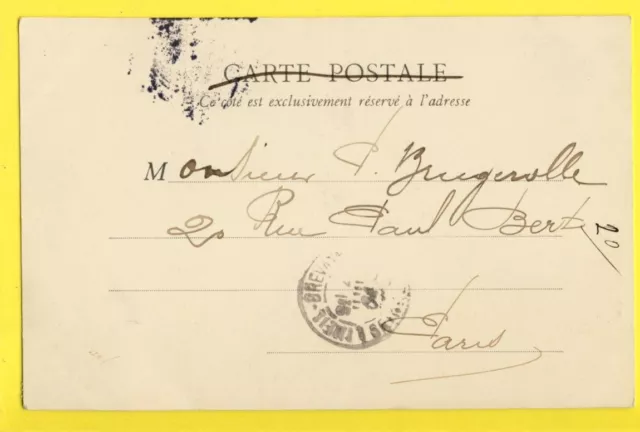 CARTE POSTALE
Ce côté est exclusivement réservé à l'adresse
Monsieur P. Brugerolle
20 Rue Paul Bert
20
Paris